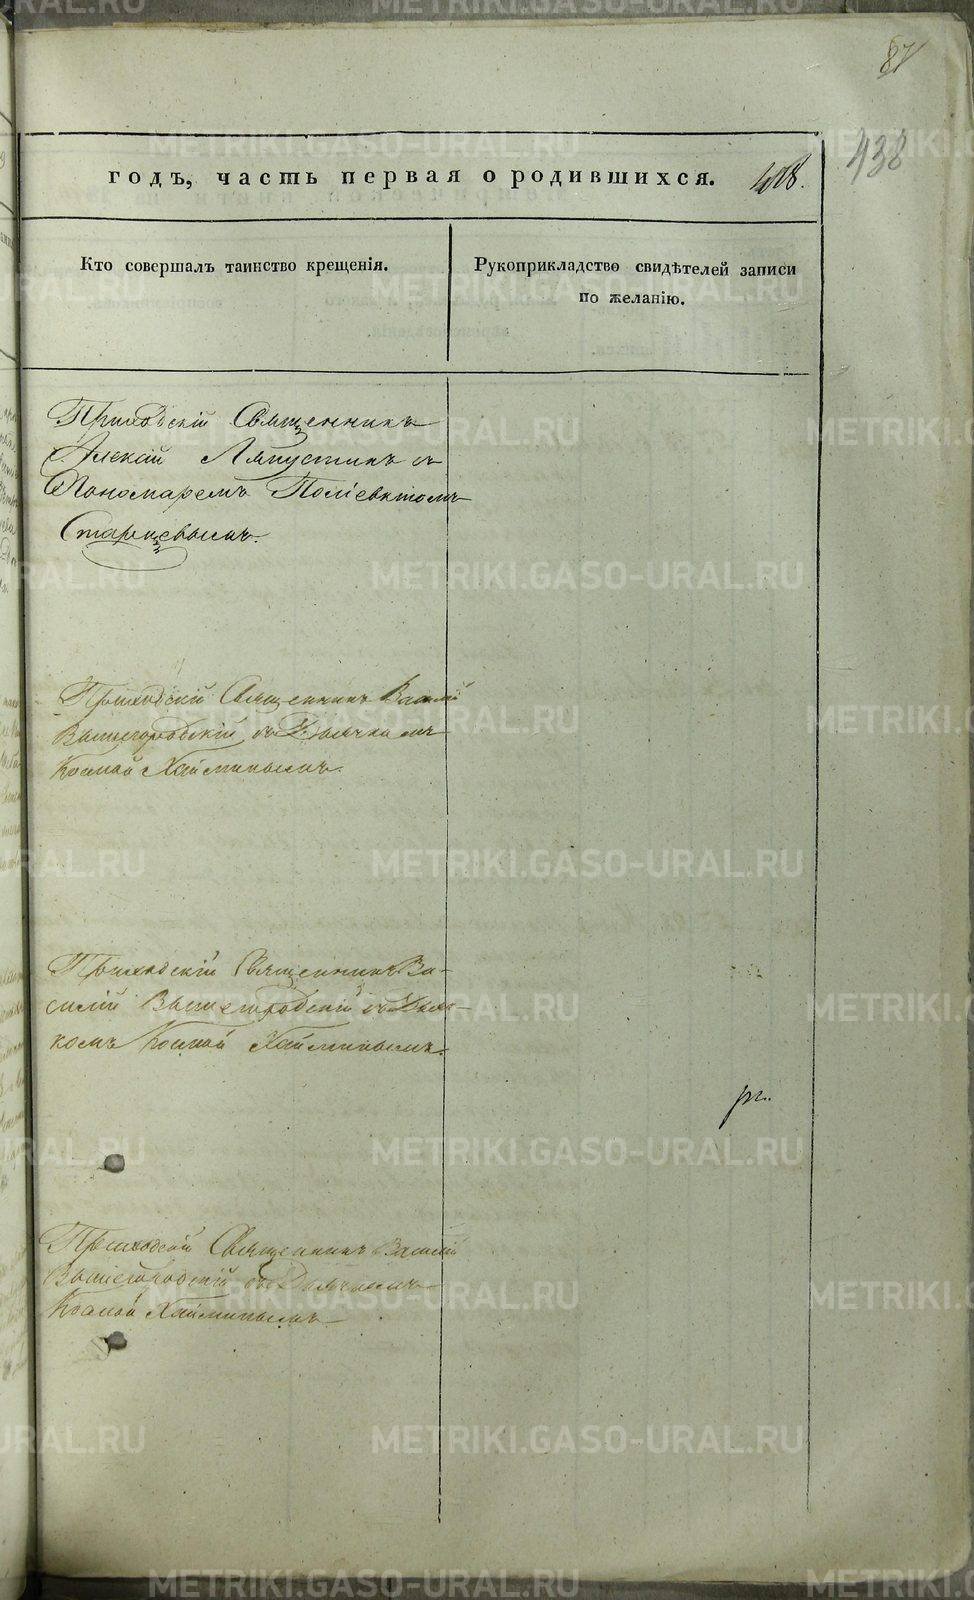 87
438
годъ, часть первая о родившихся. 408.
Кто совершалъ таинство крещенія.
Рукоприкладство свидѣтелей записи
по желанію.
Приходскій Священникъ
Алексій Ляпустинъ съ
Пономаремъ Поліевктомъ
Старцевымъ.
Приходскій Священникъ Василій
Вышегородскій съ Дьячкомъ
Космой Хайминымъ.
Приходскій Священникъ Ва-
силій Вышегородскій съ Дьяч-
комъ Космой Хайминымъ.
Приходскій Священникъ Василій
Вышегородскій съ Дьячкомъ
Космой Хайминымъ
METRIKI.GASO-URAL.RU